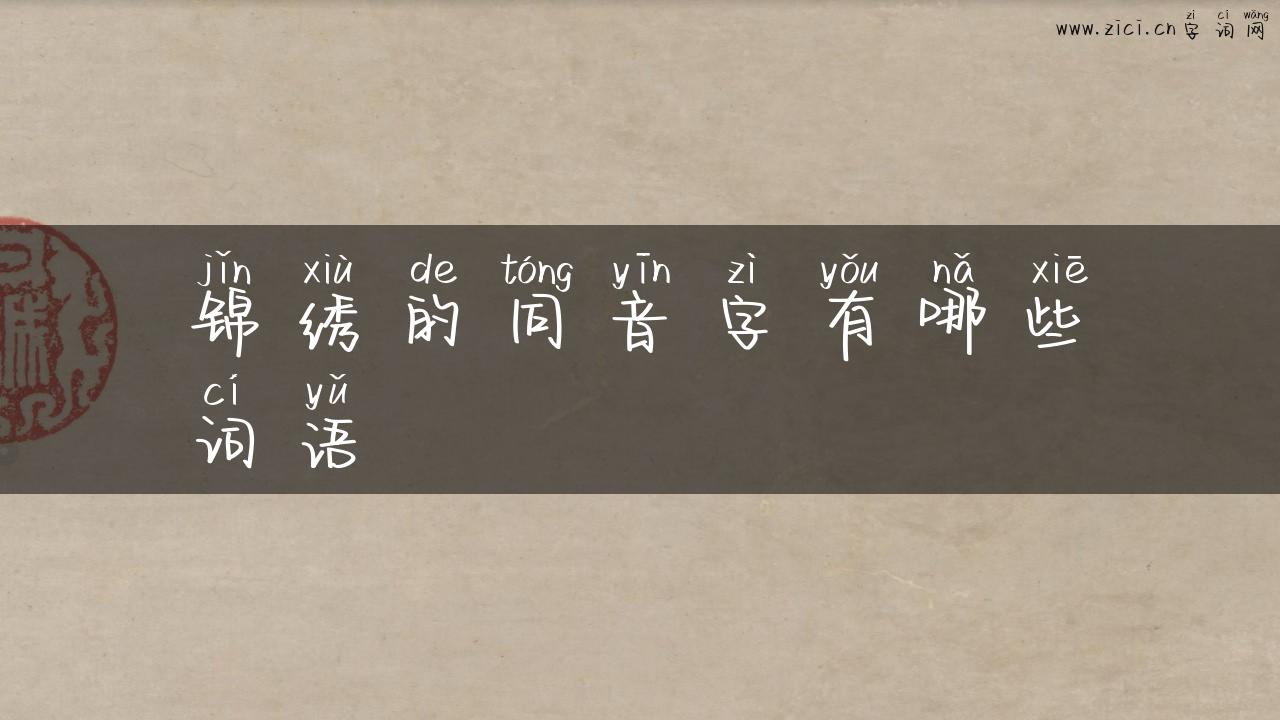 zì cí wǎng
www.zici.cn 字 词 网
jǐn xiù de tóng yīn zì yǒu nǎ xiē
锦 绣 的 同 音 字 有 哪 些
cí yǔ
词 语